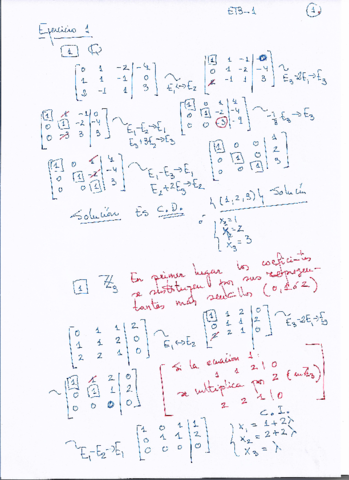 ETB-1 1.
Ejercicio 1
1
0 1 -2 | -4
1 1 -1 | 0
2 -1 1 | 3
~ E1↔E2
1 1 -1 | 0
0 1 -2 | -4
2 -1 1 | 3
~ E3-2E1→E3
1 1 -1 | 0
0 1 -2 | -4
0 -3 3 | 3
~ E1-E2→E1
E3+3E2→E3
1 0 1 | 4
0 1 -2 | -4
0 0 -3 | -9
~ -1/3 E3→E3
1 0 1 | 4
0 1 -2 | -4
0 0 1 | 3
~ E1-E3→E1
E2+2E3→E2
1 0 0 | 1
0 1 0 | 2
0 0 1 | 3
Solución Es C.D. {(1,2,3)} Solución
ó x1=1
x2=2
x3=3
1 - Z3 En primer lugar los coeficientes
se sustituyen por sus represen-
tantes más sencillos (0,1 ó 2)
0 1 1 | 2
1 1 2 | 0
2 2 1 | 0
~ E1↔E2
1 1 2 | 0
0 1 1 | 2
2 2 1 | 0
~ E3-2E1→E3
1 1 2 | 0
0 1 1 | 2
0 0 0 | 0
Si la ecuación 1:
1 1 2 | 0
se multiplica por 2 (en Z3)
2 2 1 | 0
~ E1-E2→E1
1 0 1 | 1
0 1 1 | 2
0 0 0 | 0
C.I.
x1=1+2λ
x2=2+2λ
x3=λ